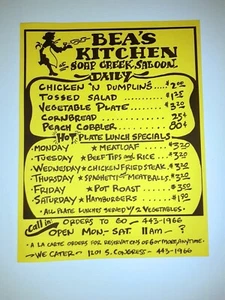 BEA'S
KITCHEN
SOAP CREEK SALOON
DAILY
CHICKEN 'N DUMPLIN'S..... $2.00
TOSSED SALAD
VEGETABLE PLATE
CORNBREAD 25¢
PEACH COBBLER 60¢
HOT PLATE LUNCH SPECIALS
MONDAY ★ MEATLOAF
TUESDAY ★ BEEF TIPS AND RICE
WEDNESDAY ★ CHICKEN FRIED STEAK
THURSDAY ★ SPAGHETTI OR MEATBALLS
FRIDAY ★ POT ROAST
SATURDAY ★ HAMBURGERS
• ALL PLATE LUNCHES SERVED W/ 2 VEGETABLES •
CALL IN: ORDERS TO GO — 443-1966
OPEN MON.-SAT. 11AM — ?
• A LA CARTE ORDERS FOR RESERVATIONS OF 6 OR MORE, ANYTIME •
— WE CATER — 1201 S. CONGRESS — 443-1966